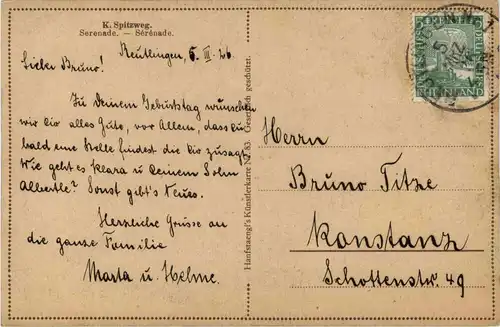 K. Spitzweg.
Serenade. — Sérénade.
Reutlingen, 5. III. 26
Lieber Bruno!
Zu Deinem Geburtstag wünschen
wir Dir alles Gute, vor Allem, dass Du
bald eine Stelle findest die Dir zusagt.
Wie geht es Klara u. Deinem Sohn
Albertle? Sonst gibt's Neues.
Herzliche Grüsse an
die ganze Familie
Marta u. Helme.
Hanfstaengl's Künstlerkarte Nr. 83. Gesetzlich geschützt.
Herrn
Bruno Titze
Konstanz
Schottenstr. 49
RHEINLAND